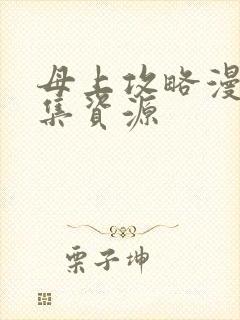 母上攻略漫
集资源
栗子坤